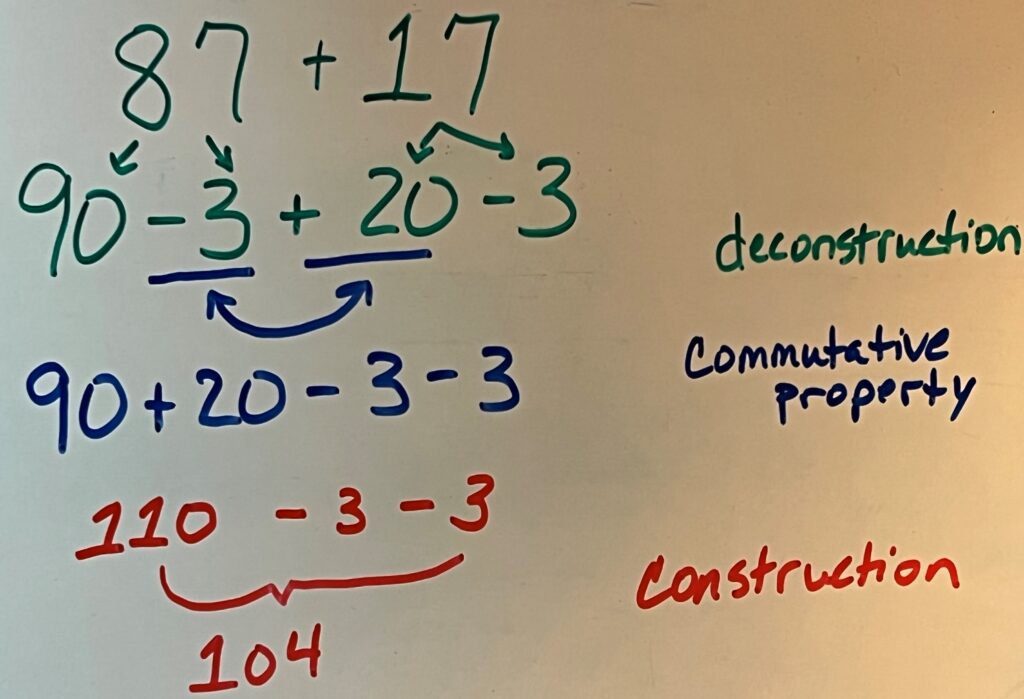 87 + 17
90 - 3 + 20 - 3
deconstruction
90 + 20 - 3 - 3
Commutative
property
110 - 3 - 3
Construction
104